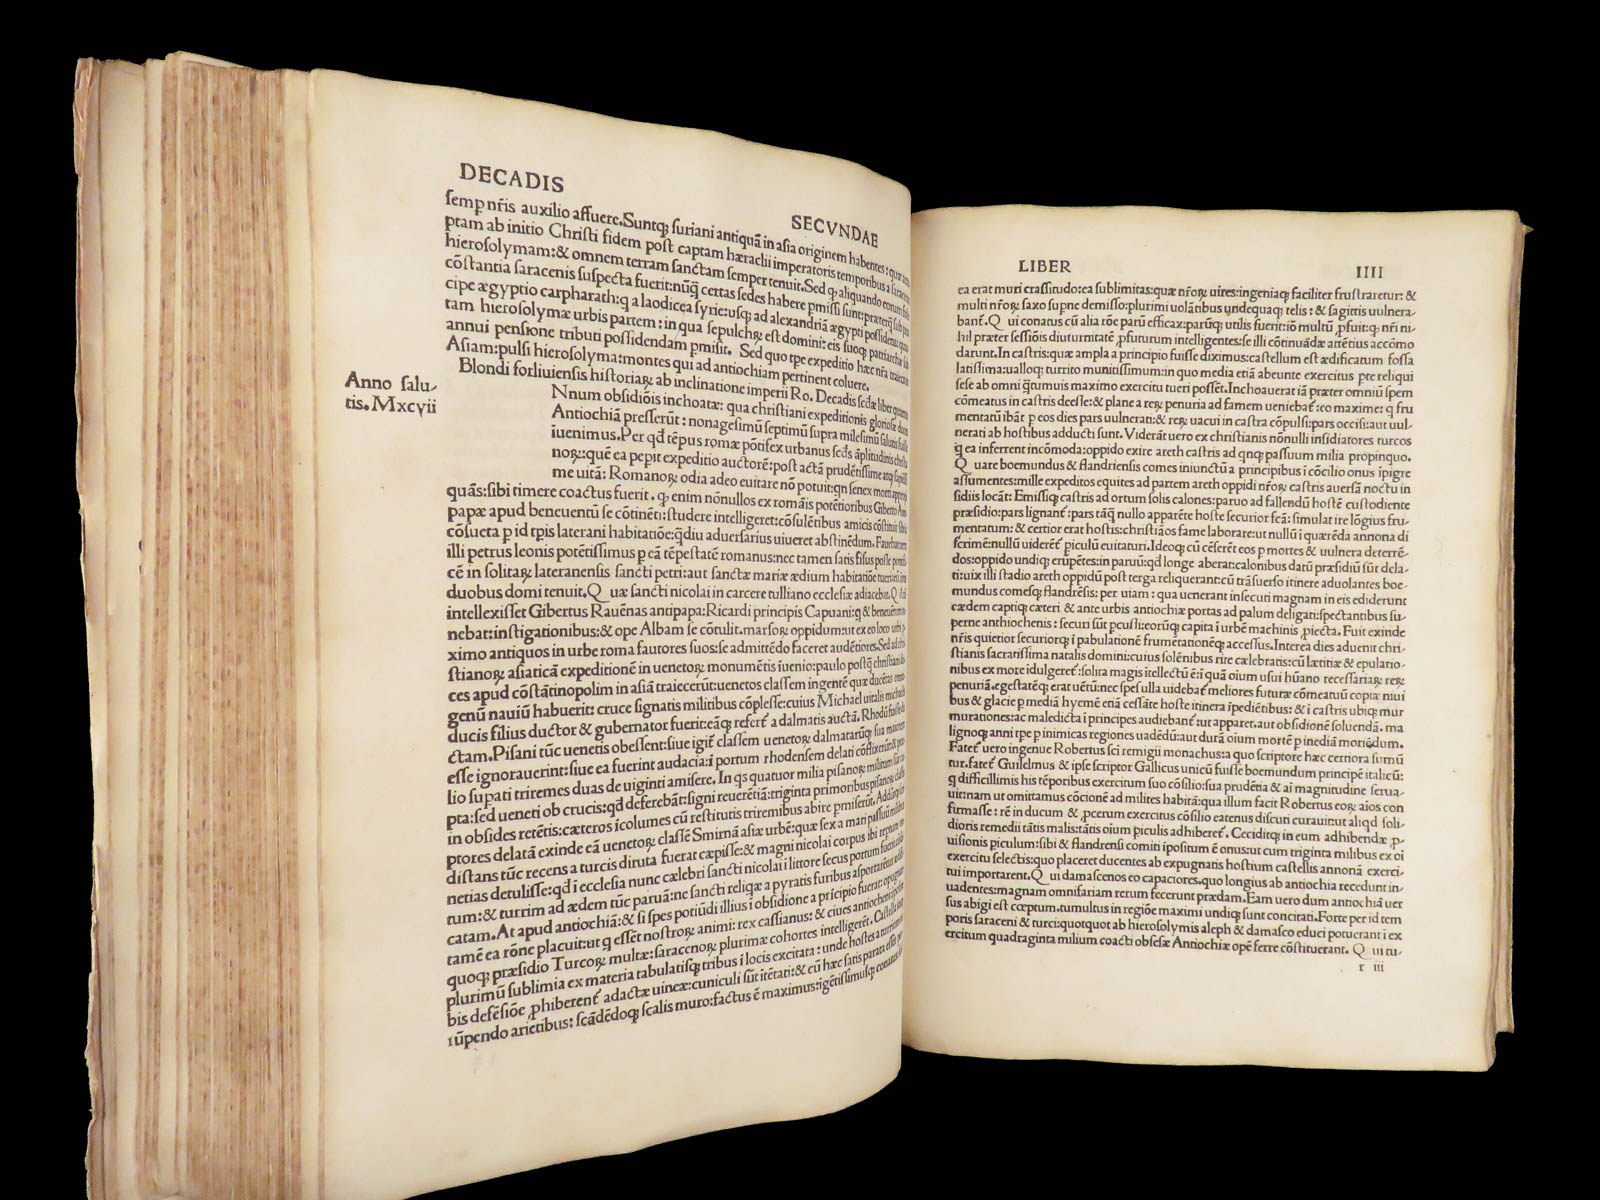 DECADIS
SECVNDAE
semp nr̃is auxilio affuere. Suntq; suriani antiquã in asia originem habentes:
ptam ab initio Christi fidem post captam hæraclii imperatoris temporibus a
hierosolymam: & omnem terram sanctam semper tenuit. Sed q; aliquando eorum
cõstantia saracenis suspecta fuerit: nũq̃ certas sedes habere pmissi sunt:
cipe ægyptio carpharath: q a laodicea syrie: usq; ad alexandriã ægypti possidenti:
tam hierosolymæ urbis partem: in qua sepulchꝝ est domini: eis suoq; patriarchæ sub
annui pensione tributi possidendam pmisit. Sed quo tpe expeditio hæc nr̃a traiecit in
Asiam: pulsi hierosolyma: montes qui ad antiochiam pertinent coluere.
Blondi forliuiensis historiaꝝ ab inclinatione imperii Ro. Decadis sc̃dæ liber quartus
Anno salu-
tis. Mxcvii
Nnum obsidiõis inchoatæ: qua christiani expeditionis gloriosæ duces
Antiochiã presserũt: nonagesimũ septimũ supra milesimũ salutis fuisse
inuenimus. Per qd̃ tẽpus romæ põtifex urbanus secds ãplitudinis christia
noꝝ: quẽ ea pepit expeditio auctorẽ: post actã prudẽtissime atq;
me uitã: Romanoꝝ odia adeo euitare nõ potuit: qn senex
quãs: sibi timere coactus fuerit. q; enim nõnullos ex romãis potẽtioribus Giberto
papæ apud beneuentũ se cõtinẽti: studere intelligeret: cõsulẽtibus amicis cõstituit
cõsueta p id tpis laterani habitatiõe: q̃diu aduersarius uiueret abstinẽdum.
illi petrus leonis potẽtissimus p eã tẽpestatẽ romanus: nec tamen satis fisus posse
cẽ in solitaꝝ lateranensis sancti petri: aut sanctæ mariæ ædium habitatiõe tueri:
duobus domi tenuit. Quæ sancti nicolai in carcere tulliano ecclesiæ adiacebat.
intellexisset Gibertus Rauẽnas antipapa: Ricardi principis Capuani: q &
nebat: instigationibus: & ope Albam se cõtulit. marsoꝝ oppidum: ut ex eo loco urbi p-
ximo antiquos in urbe roma fautores suos: se admittẽdo faceret audẽtiores. Sed ad chri
stianoꝝ asiaticã expeditionẽ in uenetoꝝ monumẽtis iuenio: paulo postq̃ christiani du-
ces apud cõstãtinopolim in asiã traiecerũt: uenetos classem ingentẽ quæ ducẽtas
genũ nauiũ habuerit: cruce signatis militibus cõplesse: cuius Michael uitalis michaelis
ducis filius ductor & gubernator fuerit: eãq; refert̃ a dalmatis auctã. Rhodũ fuisse
ctam. Pisani tũc uenetis obessent: siue igit̃ classem uenetoꝝ dalmatarũq; sua
esse ignorauerint: siue ea fuerint audacia: i portum rhodensem delati cõflixerũt:
lio su pati triremes duas de uiginti amisere. In qs quatuor milia pisanoꝝ militum
pta: sed ueneti ob crucis: qd̃ deferebãt: signi reuerẽtiã: triginta primoribus pisanoꝝ
in obsides retẽtis: cæteros icolumes cũ restitutis triremibus abire pmiserũt.
ptores delatã exinde eã uenetoꝝ classẽ Smirnã asiæ urbẽ: quæ sex a mari passuũ milibus
distans tũc recens a turcis diruta fuerat cæpisse: & magni nicolai corpus ibi
netias detulisse: qd̃ i ecclesia nunc cælebri sancti nicolai i littore secus portum
tum: & turrim ad ædem tũc paruã: ne sancti reliqæ a pyratis furibus asportarẽtur
catam. At apud antiochiã: & si spes potiũdi illius i obsidione a pricipio fuerat:
tamẽ ea rõne placuit: ut q esset̃ nostroꝝ animi: rex cassianus: & ciues antiocheni
quoq; præsidio Turcoꝝ multæ: saracenoꝝ plurimæ cohortes intelligeret̃. Castella
plurimũ sublimia ex materia tabulatisq; tribus i locis excitata: unde hostes a
bis defẽsiõe, phiberent̃ adactæ uineæ: cuniculi sũt itẽtari: & cũ hæc satis parata
iũpendo arietibus: scãdẽdoq; scalis muro: factus ẽ maximus: igẽtissimusq; conatus
LIBER
IIII
ea erat muri crassitudo: ea sublimitas: quæ nr̃oꝝ uires: ingeniaq; faciliter frustraretur: &
multi nr̃oꝝ saxo supne demisso: plurimi uolãtibus undequaq; telis: & sagittis uulnera-
bant̃. Qui conatus cũ alia rõe parũ efficax: parũq; utilis fuerit: iõ multũ, pfuit: q; nr̃i ni-
hil præter sessiõis diuturnitatẽ, pfuturum intelligentes: se illi cõtinuãdæ attẽtius accõmo
darunt. In castris: quæ ampla a principio fuisse diximus: castellum est ædificatum fossa
latissima: ualloq; turrito munitissimum: in quo media etiã abeunte exercitus pte reliqui
sese ab omni q̃tumuis maximo exercitu tueri possẽt. Inchoauerat iã præter omniũ spem
cõmeatus in castris deesse: & plane a reꝝ penuria ad famem ueniebat̃: eo maxime: q fru
mentatũ ibãt p eos dies pars uulnerati: & reꝝ uacui in castra cõpulsi: pars occisi: aut uul-
nerati ab hostibus adducti sunt. Viderãt uero ex christianis nõnulli insidiatores turcos
q̃ ea inferrent incõmoda: oppido exire areth castris ad qnq; passuum milia propinquo.
Quare boemundus & flandriensis comes iniunctũ a principibus i cõcilio onus ĩpigre
assumentes: mille expeditos equites ad partem areth oppidi nr̃oꝝ castris auersã noctu in
sidiis locãt: Emissiq; castris ad ortum solis calones: paruo ad fallendũ hostẽ custodiente
præsidio: pars lignant̃: pars tãq̃ nullo apparẽte hoste securior fœ̃ã: simulat ire lõgius fru-
mentatum: & certior erat hostis: christiãos fame laborare: ut nullũ i quærẽda annona di
scrimẽ: nullũ uiderẽt̃ piculũ euitaturi. Ideoq; cũ cẽserẽt eos p mortes & uulnera deterrẽ-
dos: oppido undiq; erupẽtes: in paruũ: qd̃ longe aberat: calonibus datũ præsidiũ sũt dela-
ti: uix illi stadio areth oppidũ post terga reliquerant: cũ trãsuerso itinere aduolantes boe-
mundus comesq; flandrẽsis: per uiam: qua uenerant insecuti magnam in eis ediderunt
cædem captiq; cæteri & ante urbis antiochiæ portas ad palum deligati: spectantibus su-
perne anthiochenis: securi sũt pcussi: eorũq; capita i urbẽ machinis, piecta. Fuit exinde
nr̃is quietior securiorq; i pabulationẽ frumẽtationẽq; accessus. Interea dies aduenit chri-
stianis sacratissima natalis domini: cuius solẽnibus rite cælebratis: cũ lætitiæ & epulatio-
nibus ex more idulgeret̃: solita magis itellectũ ẽ: i quã oium usui hũano necessariaꝝ reꝝ
penuriã. egestatẽq; erat uẽtũ: nec spes ulla uidebat̃ meliores futuræ cõmeatuũ copiæ niui
bus & glacie p mediã hyemẽ etiã cessãte hoste itinera ĩpediẽtibus: & i castris ubiq; mur
murationes: ac maledicta i principes audiebant̃ ut apparet. aut obsidionẽ soluendã. ma
lignoq; anni tpe p inimicas regiones uadẽdũ: aut durã oium mortẽ p inediã moriẽdum.
Fatet̃ uero ingenue Robertus sci remigii monachus: a quo scriptore hæc certiora sumũ
tur. fatet̃ Guilelmus & ipse scriptor Gallicus unicũ fuisse boemundum principẽ italicũ:
q difficillimis his tẽporibus exercitum suo cõsilio: sua prudẽtia & ai magnitudine serua-
uit: nam ut omittamus cõcionẽ ad milites habitã: qua illum facit Robertus eoꝝ aios con
firmasse: rẽ in ducum &, pcerum exercitus cõsilio eatenus discuti curauit: ut aliqd̃ soli-
dioris remedii tãtis malis: tãtis oium piculis adhiberet̃. Ceciditq; in eum adhibendæ, p-
uisionis piculum: sibi & flandrensi comiti ipositum ẽ onus: ut cum triginta milibus ex oi
exercitu selectis: quo placeret ducentes ab expugnatis hostium castellis annonã exerci-
tui importarent. Qui damascenos eo capaciores. quo longius ab antiochia recedunt in-
uadentes: magnam omnifariam rerum fecerunt prædam. Eam uero dum antiochiã uer
sus abigi est cœptum. tumultus in regiõe maximi undiq; sunt concitati. Forte per id tem
poris saraceni & turci: quotquot ab hierosolymis aleph & damasco educi potuerant i ex
ercitum quadraginta milium coacti obsesæ Antiochiæ opẽ ferre cõstituerant. Qui tu-
r iii